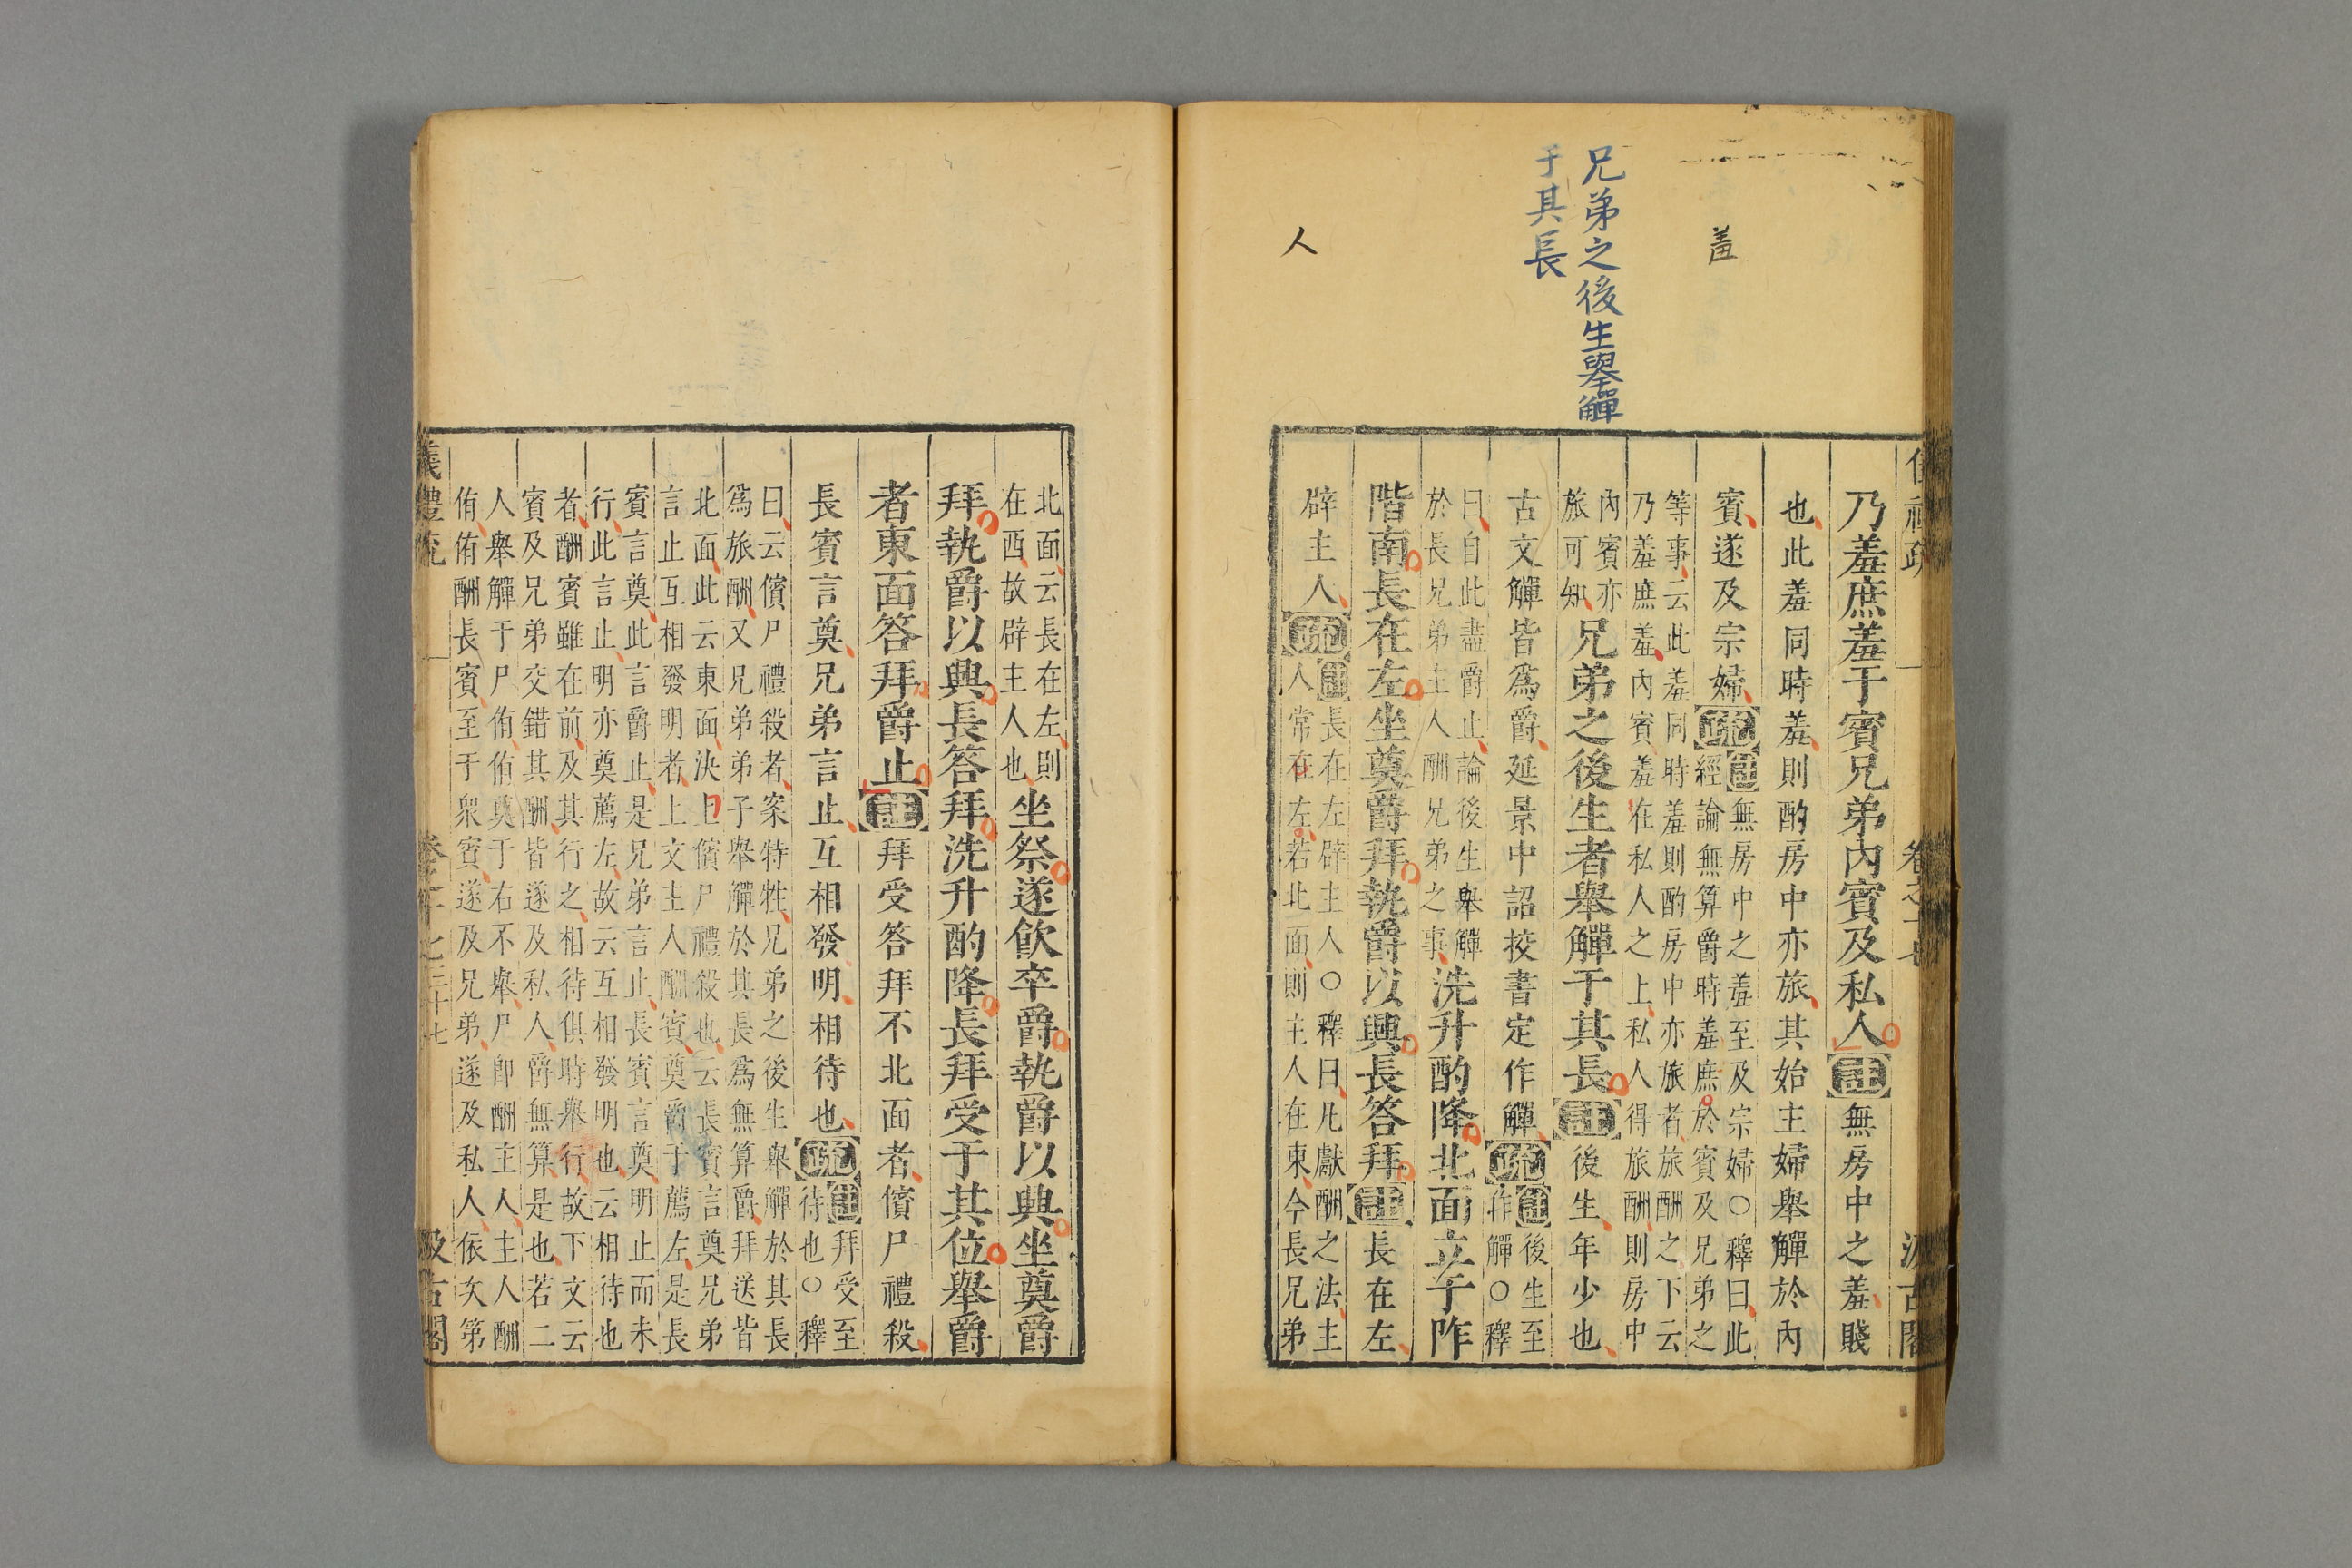 羞
兄弟之後生舉觶
于其長
人
乃羞庶羞于賓兄弟內賓及私人註無房中之羞賤
也此羞同時羞則酌房中亦旅其始主婦舉觶於內
賓遂及宗婦疏註無房中之羞至及宗婦○釋曰此
經論無算爵時羞庶於賓及兄弟之
等事云此羞同時羞則酌房中亦旅者旅酬之下云
乃羞庶羞內賓羞在私人之上私人得旅酬則房中
內賓亦
旅可知兄弟之後生者舉觶于其長註後生年少也
古文觶皆爲爵延景中詔挍書定作觶疏註後生至
作觶○釋
曰自此盡爵止論後生舉觶
於長兄弟主人酬兄弟之事洗升酌降北面立于阼
階南長在左坐奠爵拜執爵以興長答拜註長在左
辟主人疏註長在左辟主人○釋曰凡獻酬之法主
人常在左若北面則主人在東今長兄弟
北面云長在左則
在西故辟主人也坐祭遂飲卒爵執爵以興坐奠爵
拜執爵以興長答拜洗升酌降長拜受于其位舉爵
者東面答拜爵止註拜受答拜不北面者儐尸禮殺
長賓言奠兄弟言止互相發明相待也疏註拜受至
待也○釋
曰云儐尸禮殺者案特牲兄弟之後生舉觶於其長
爲旅酬又兄弟弟子舉觶於其長爲無算爵拜送皆
北面此云東面決上儐尸禮殺也云長賓言奠兄弟
言止互相發明者上文主人酬賓奠爵于薦左是長
賓言奠此言爵止是兄弟言止長賓言奠明止而未
行此言止明亦奠薦左故云互相發明也云相待也
者酬賓雖在前及其行之相待俱時舉行故下文云
賓及兄弟交錯其酬皆遂及私人爵無算是也若二
人舉觶于尸侑侑奠于右不舉尸即酬主人主人酬
侑侑酬長賓至于眾賓遂及兄弟遂及私人依次第
卷之十七
汲古閣
儀禮疏
卷之十七
三十七
汲古閣